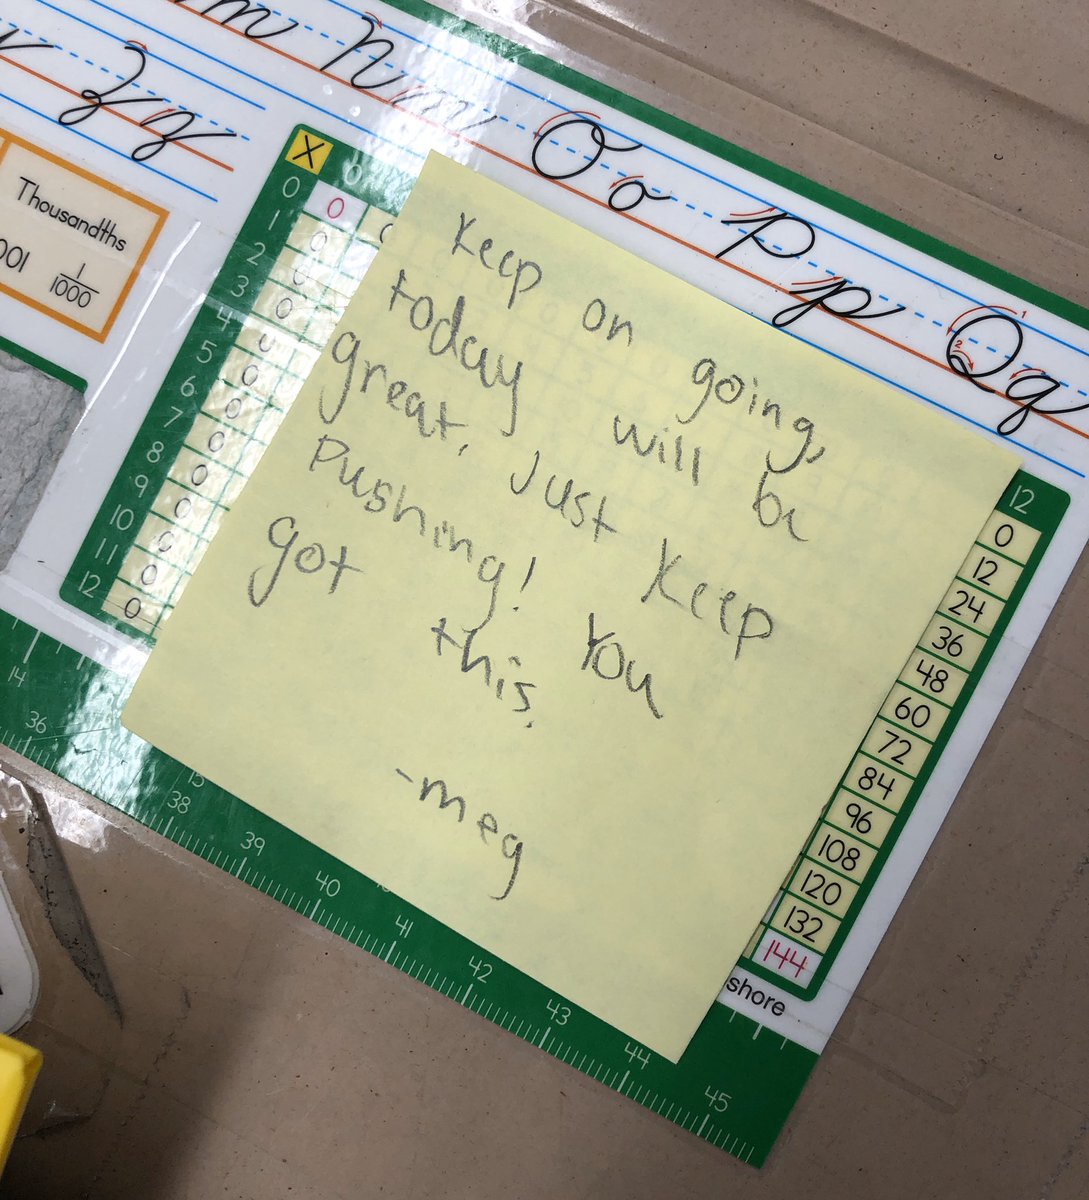 m N n O o P p Q q
Z z
Thousandths
001 1/1000
X 0
0 0 0
1 0
2 0
3 0
4 0
5 0
6 0
7 0
8 0
9 0
10 0
11 0
12 0
Keep on going,
today will be
great, just keep
pushing! You
got this.
-meg
12
0
12
24
36
48
60
72
84
96
108
120
132
144
shore
14 15
36 38 39 40 41 42 43 44 45